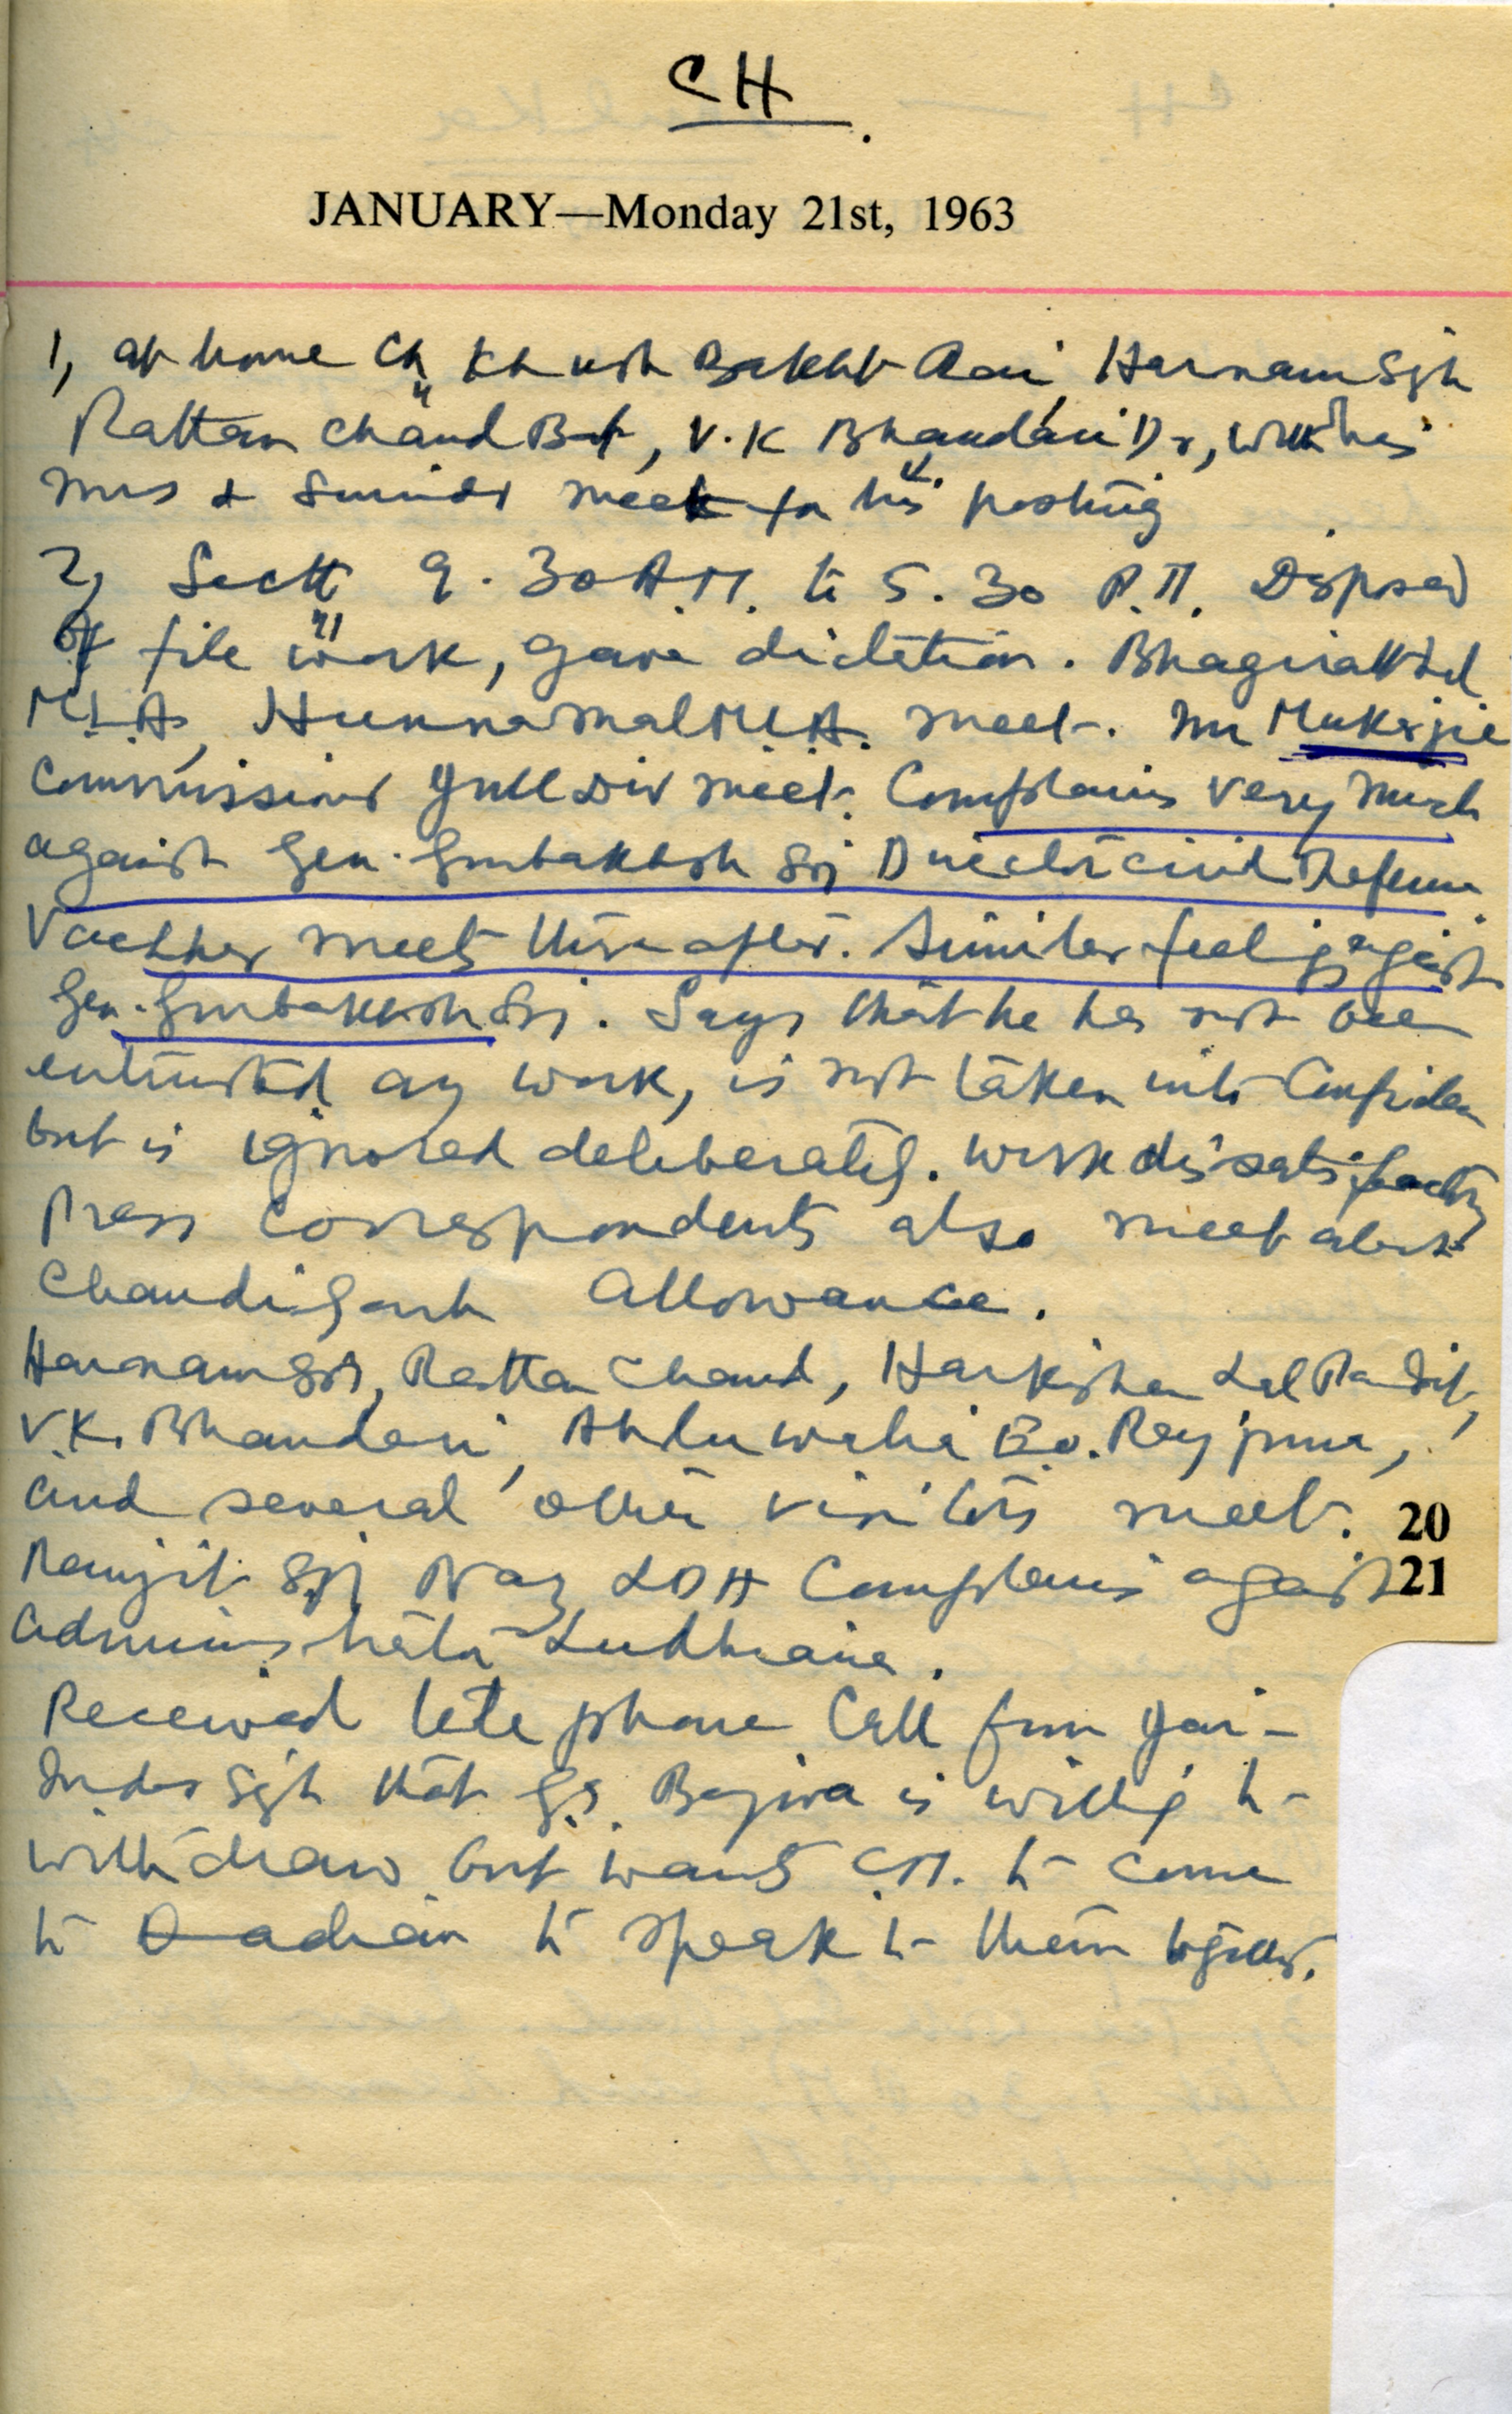 CH
JANUARY—Monday 21st, 1963
1, at home Ch Khush Bakht Rai, Harnam Sgh
Rattan Chand B, V.K Bhandari Dr, with his
Mrs & Surinder meet for his posting
2, Sectt 9.30 A.M. to 5.30 P.M. Disposed
of file work, gave dictation. Bhagirath Lal
M.L.A, Hukna Mal M.L.A. meet. Mr Mukerjie
Commissioner Jull Div meet. Complains very much
against Gen. Gurbakhsh Sgh Director Civil Defence
Vachher meets thereafter. Similar feeligs agaist
Gen. Gurbakhsh Sgh. Says that he has not been
entrusted any work, is not taken into Confidence
but is ignored deliberately. Work dissatisfactory
Press Correspondents also meet about
Chandigarh Allowance.
Harnam Sgh, Rattan Chand, Harkishan Lal Pandit,
V.K. Bhandari, Ahluwalia E.O. Rajpura,
and several other visitors meet. 20
Ranjit Sgh Naz LDH Complains agaist 21
administration Ludhiana.
Received telephone Call from Jai-
Inder Sgh that G.S. Bajwa is willig to
withdraw but wants C.M. to come
to Qadian to speak to them together.